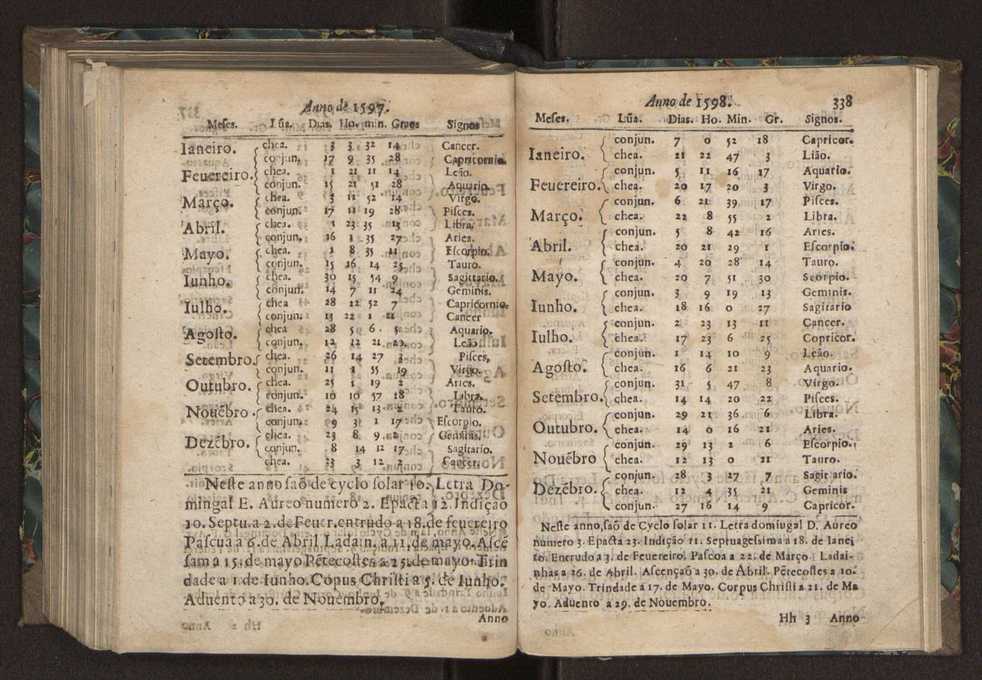 Anno de 1597.
Meses. Lũa. Dias. Ho. min. Graos Signos
Ianeiro. chea. 3 3 32 14 Cancer.
conjun. 17 9 35 28 Capricornio.
Feuereiro. chea. 1 21 11 14 Leão.
conjun. 15 21 51 28 Aquario.
Março. chea. 3 12 52 14 Virgo.
conjun. 17 11 19 28 Pisces.
Abril. chea. 1 23 35 13 Libra.
conjun. 16 1 35 27 Aries.
Mayo. chea. 1 8 35 11 Escorpio.
conjun. 15 16 14 25 Tauro.
Iunho. chea. 30 15 54 9 Sagittario.
conjun. 14 7 11 24 Geminis.
Iulho. chea 28 22 52 7 Capricornio.
conjun. 13 22 1 Cancer
Agosto. chea 28 5 6. Aquario.
conjun. 12 12 21 Leão
Setembro. chea. 26 14 27 3 Pisces,
conjun. 11 1 55 19 Virgo.
Outubro. chea. 25 1 19 2 Aries.
conjun. 10 10 57 18 Libra.
Nouẽbro. chea. 24 15 13 2 Tauro.
conjun. 9 3 1 17 Escorpio.
Dezẽbro. chea. 23 8 9 Geminis.
conjun. 8 14 12 17 Sagitario.
chea. 23 3 12
Neste anno saõ de cyclo solar 10. Letra Do-
mingal E. Aureo numero 2. Epacta 12. Indição
10. Septu. a 2. de Feuer, entrudo a 18. de feuereiro
Pascua a 6. de Abril Ladain. a 11. de mayo. Ascẽ
sam a 15. de mayo Pẽtecostes a 25. de mayo. Trin
dade a 1. de Iunho. Copus Christi a 5. de Iunho.
Aduento a 30. de Nouembro.
Anno
Anno de 1598. 338
Meses. Lũa. Dias. Ho. Min. Gr. Signos.
Ianeiro. conjun. 7 0 52 18 Capricor.
chea. 21 22 47 3 Lião.
Feuereiro. conjun. 5 11 16 17 Aquario.
chea. 20 17 20 3 Virgo.
Março. conjun. 6 21 39 17 Pisces.
chea. 22 8 55 2 Libra.
Abril. conjun. 5 8 42 16 Aries.
chea. 20 21 29 1 Escorpio.
Mayo. conjun. 4 20 28 14 Tauro.
chea. 20 7 51 30 Scorpio.
Iunho. conjun. 3 9 19 13 Geminis.
chea. 18 16 0 27 Sagitario
Iulho. conjun. 2 23 13 11 Cancer.
chea. 17 23 6 25 Copricor.
Agosto. conjun. 1 14 10 9 Leão.
chea. 16 6 21 23 Aquario.
Setembro. conjun. 31 5 47 8 Virgo.
chea. 14 14 20 22 Pisces.
Outubro. conjun. 29 21 36 6 Libra.
chea. 14 0 16 21 Aries.
Nouẽbro conjun. 29 13 2 6 Escorpio.
chea. 12 13 0 21 Tauro.
Dezẽbro. conjun. 28 3 27 7 Sagitario.
chea. 12 4 35 21 Geminis
conjun. 27 16 14 9 Capricor.
Neste anno, saõ de Cyclo solar 11. Letra domingal D. Aureo
numero 3. Epacta 23. Indição 11. Septuagesima a 18. de Ianei
ro. Entrudo a 3. de Feuereiro. Pascoa a 22. de Março Ladai-
nhas a 26. de Abril. Ascençaõ a 30. de Abril. Pẽtecostes a 10.
de Mayo. Trindade a 17. de Mayo. Corpus Christi a 21. de Ma
yo. Aduento a 29. de Nouembro.
Hh 3 Anno